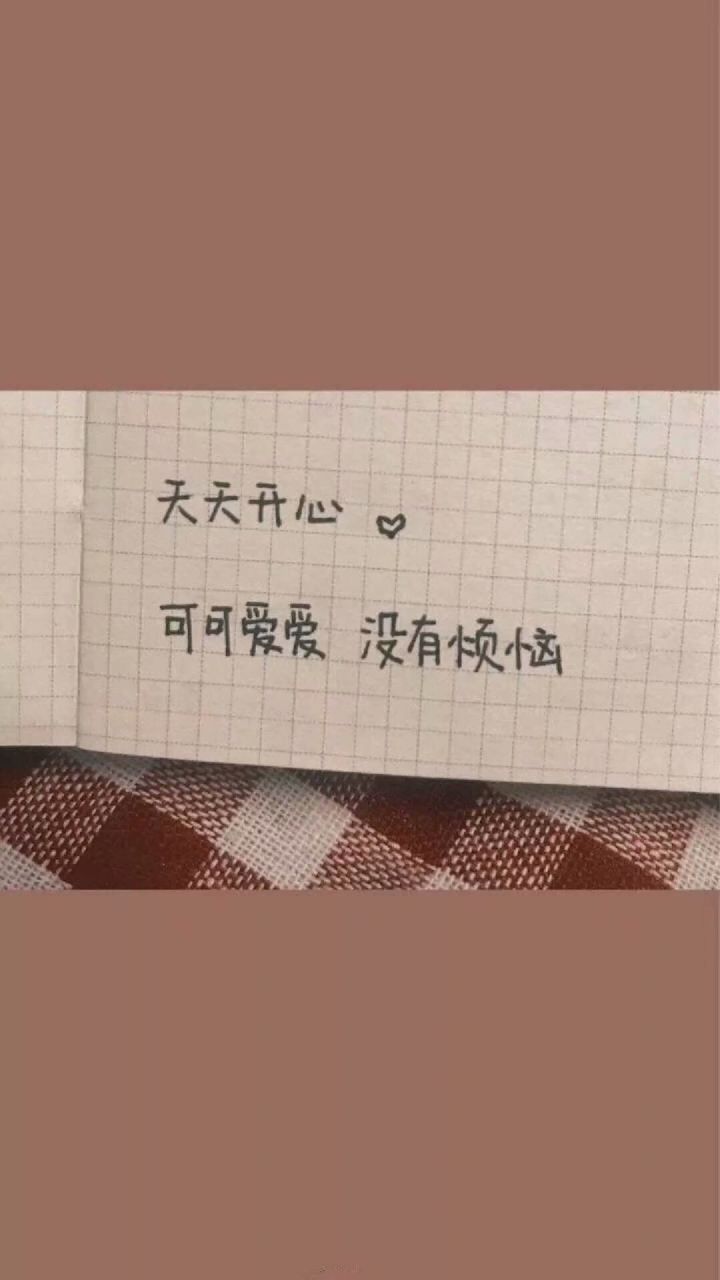 天天开心 ♡
可可爱爱 没有烦恼